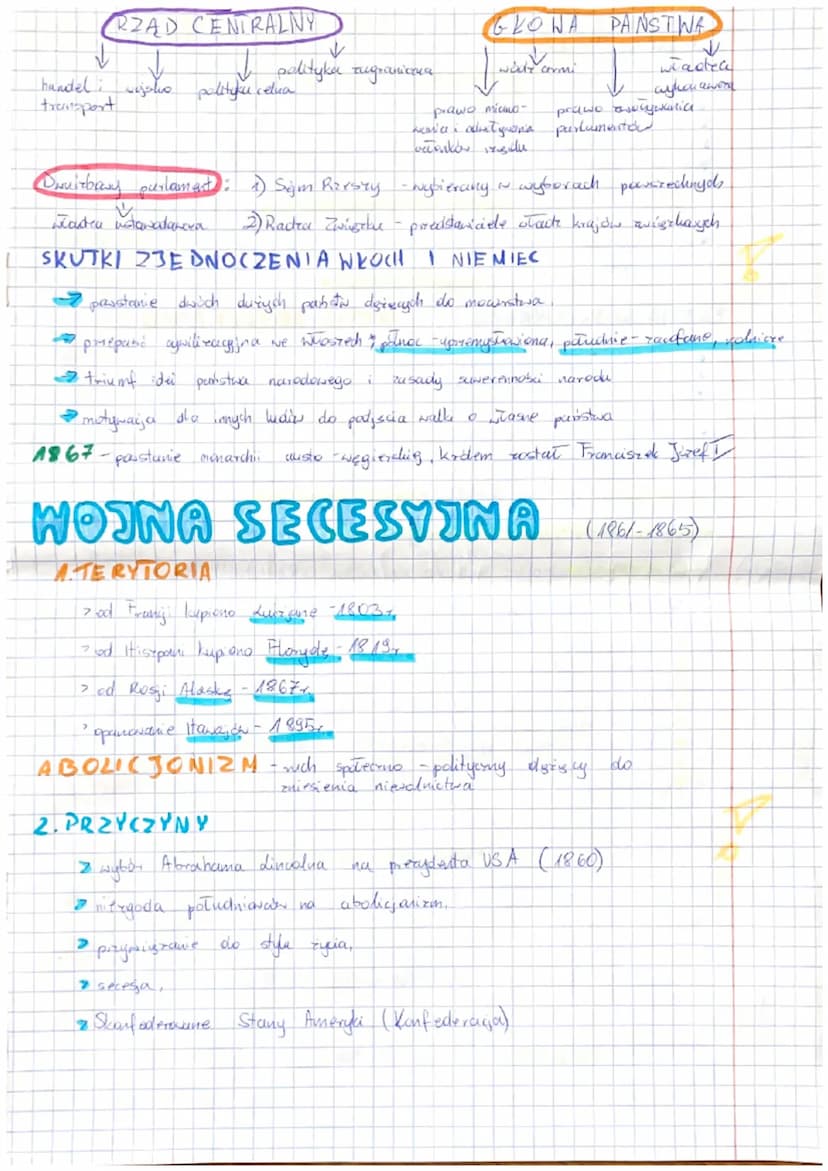 RZĄD CENTRALNY
GŁOWA PAŃSTWA
handel i transport
wojsko
polityka celna
polityka zagraniczna
wódz armii
prawo mianowania i odwoływania członków rządu
prawo zwoływania parlamentów
władza wykonawcza
Dwuizbowy parlament: 1) Sejm Rzeszy - wybierany w wyborach powszechnych
władza ustawodawcza 2) Radza Związku - przedstawiciele władz krajów związkowych
SKUTKI ZJEDNOCZENIA WŁOCH I NIEMIEC
→ powstanie dwóch dużych państw dążących do mocarstwa,
→ przepaść cywilizacyjna we Włoszech; północ - uprzemysłowiona, południe - zacofane, rolnicze
→ triumf idei państwa narodowego i zasady suwerenności narodu
→ motywacja dla innych ludów do podjścia walki o własne państwa
1867 - powstanie monarchii austo - węgierskiej, królem został Franciszek Józef I
WOJNA SECESYJNA (1861-1865)
1. TERYTORIA
> od Francji kupiono Luizjanę - 1803r.
> od Hiszpani kupiono Florydę - 1819r.
> od Rosji Alaskę - 1867r.
> opanowanie Hawajów - 1895r.
ABOLICJONIZM - ruch społeczno - polityczny dążący do
zniesienia niewolnictwa
2. PRZYCZYNY
> wybór Abrahama Lincolna na prezydenta USA (1860)
> niezgoda południowców na abolicjonizm,
> przywiązanie do stylu życia,
> secesja,
> Skonfederowane Stany Ameryki (Konfederacja)